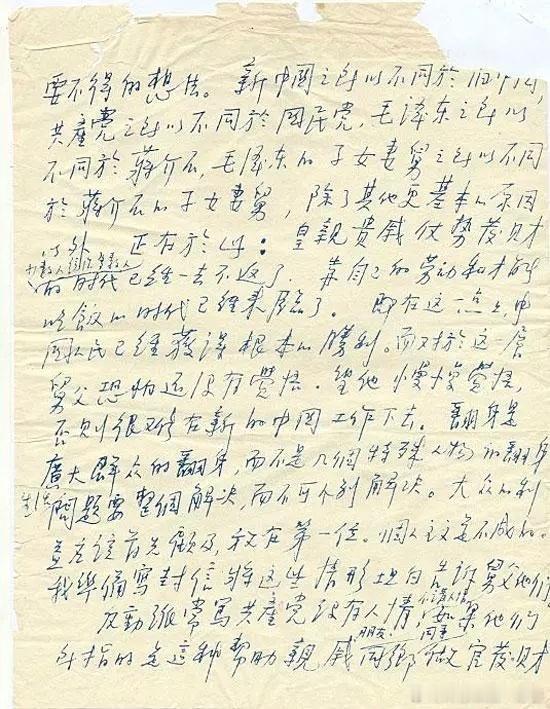 要不得的想法。新中國之所以不同於旧中国，
共產党之所以不同於国民党，毛澤东之所以
不同於蔣介石，毛澤东的子女妻舅之所以不同
於蔣介石的子女妻舅，除了其他更基本的原因
以外 正在於此：皇親貴戚仗势發財
少数人统治多数人
的时代已經一去不返了，靠自己的劳动和才能
吃飯的时代已經来臨了。即在这一点上，中
国人民已經獲得根本的勝利。而对於这一层
舅父恐怕还没有覺悟。望他慢慢覺悟，
否则很难在新的中国工作下去。翻身是
廣大群众的翻身，而不是几個特殊人物的翻身
生活
問題要整個解决，而不可个别解决。大众的利
益应该首先顧及，放在第一位。個人主义是不成的。
我準備寫封信将这些情形坦白告訴舅父他们
反動派常罵共產党没有人情，如果他们
不讲人情
朋友 同事
所指的是这种帮助親戚同鄉做官發財